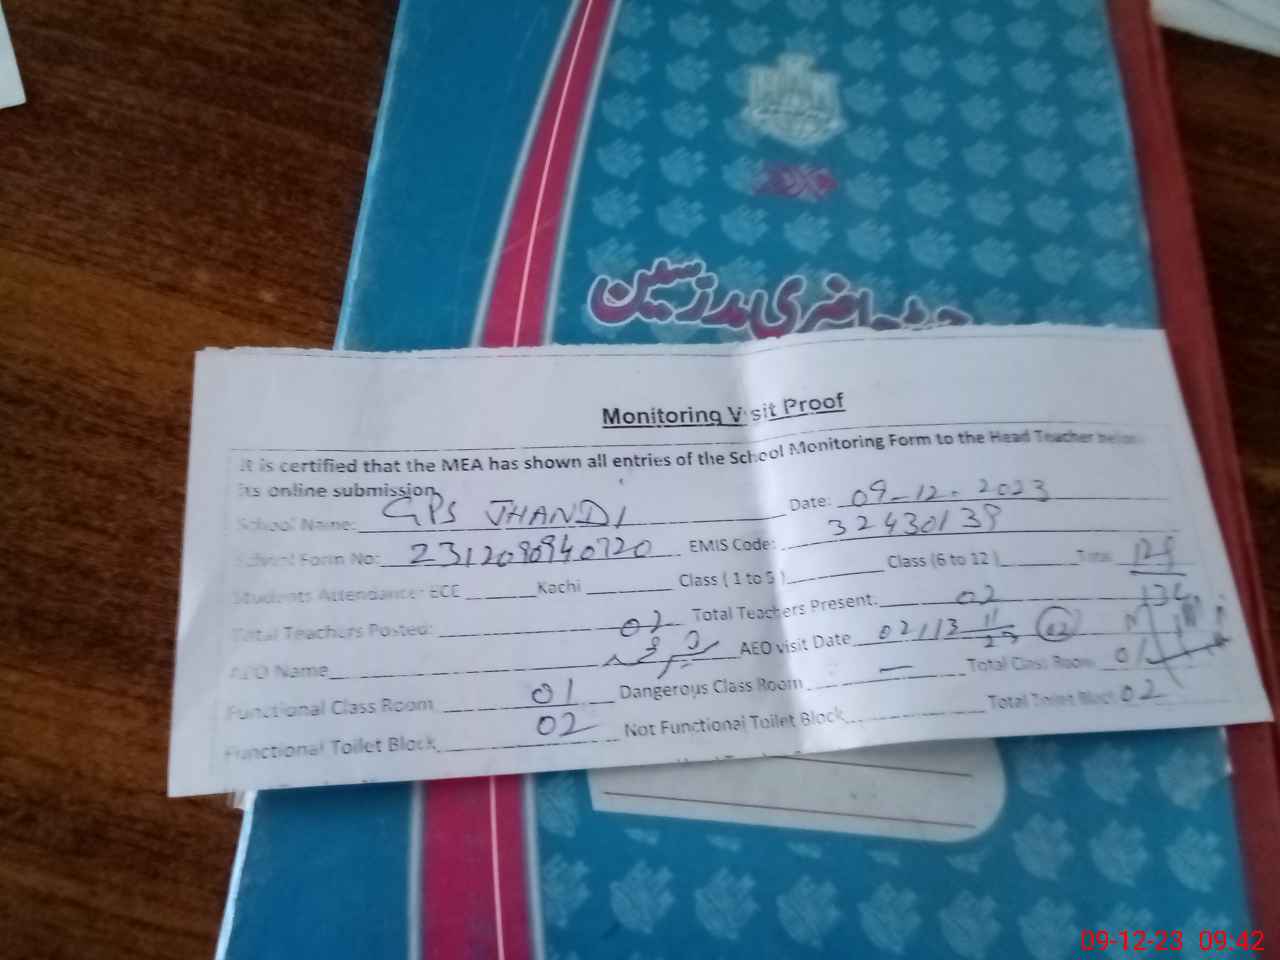 حاضری مدرسین
Monitoring Visit Proof
It is certified that the MEA has shown all entries of the School Monitoring Form to the Head Teacher before
its online submission
School Name: GPS JHANDI Date: 09-12-2023
School Form No: 2312090940720 EMIS Code: 32430139
Students Attendance: ECE Kachi Class ( 1 to 5 ) Class (6 to 12 ) Total
Total Teachers Posted: 02 Total Teachers Present: 02
AEO Name AEO visit Date 02, 13 11/23 02
Functional Class Room 01 Dangerous Class Room — Total Class Room 01
Functional Toilet Block 02 Not Functional Toilet Block Total Toilet Block 02
09-12-23 09:42